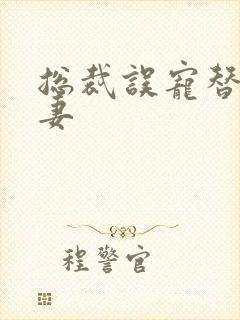 总裁误宠替
妻
程警官